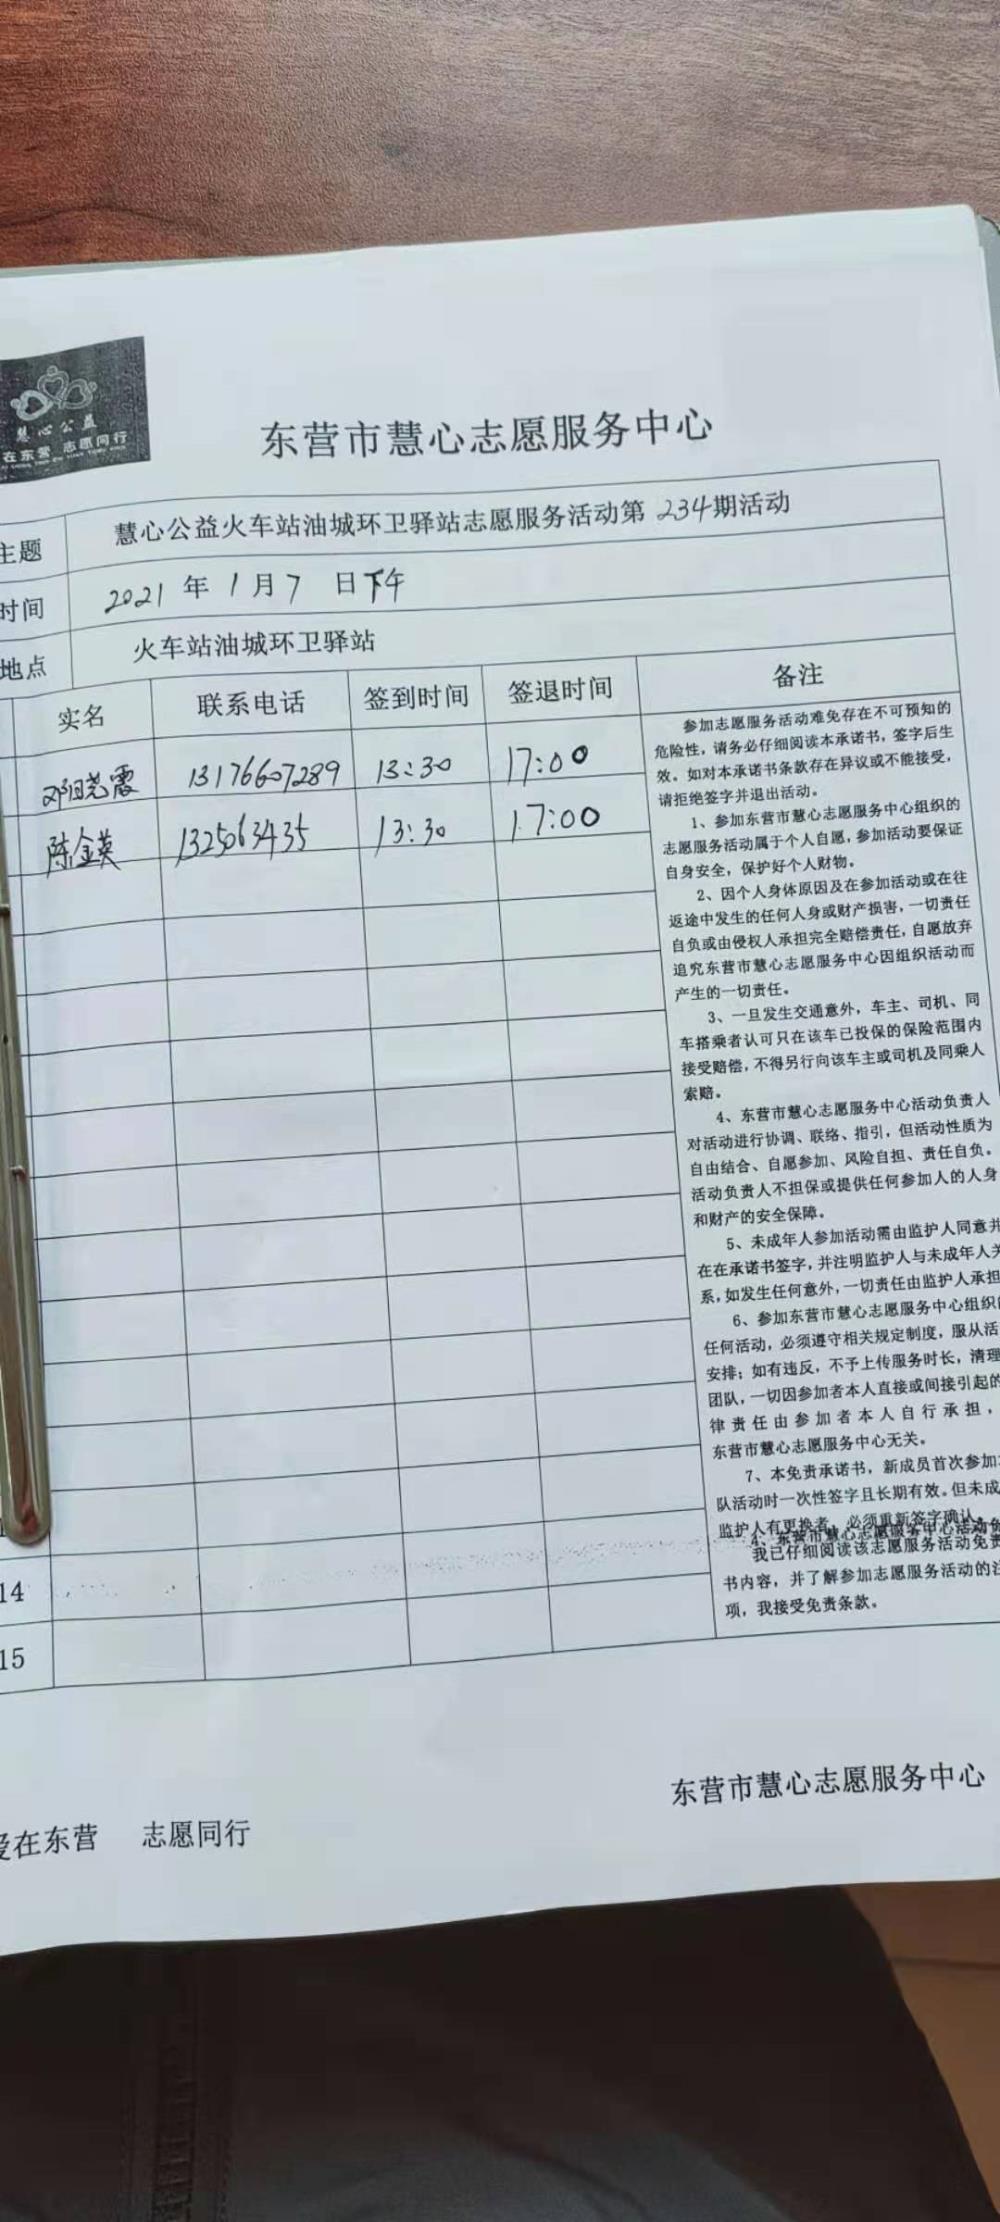 慧心公益
在东营 志愿同行
东营市慧心志愿服务中心
主题 慧心公益火车站油城环卫驿站志愿服务活动第234期活动
时间 2021年1月7日下午
地点 火车站油城环卫驿站
实名 联系电话 签到时间 签退时间 备注
邓晓霞 13176607289 13:30 17:00
陈金英 1325063435 13:30 17:00
参加志愿服务活动难免存在不可预知的
危险性，请务必仔细阅读本承诺书，签字后生
效。如对本承诺书条款存在异议或不能接受，
请拒绝签字并退出活动。
1、参加东营市慧心志愿服务中心组织的
志愿服务活动属于个人自愿，参加活动要保证
自身安全，保护好个人财物。
2、因个人身体原因及在参加活动或在往
返途中发生的任何人身或财产损害，一切责任
自负或由侵权人承担完全赔偿责任，自愿放弃
追究东营市慧心志愿服务中心因组织活动而
产生的一切责任。
3、一旦发生交通意外，车主、司机、同
车搭乘者认可只在该车已投保的保险范围内
接受赔偿，不得另行向该车主或司机及同乘人
索赔。
4、东营市慧心志愿服务中心活动负责人
对活动进行协调、联络、指引，但活动性质为
自由结合、自愿参加、风险自担、责任自负。
活动负责人不担保或提供任何参加人的人身
和财产的安全保障。
5、未成年人参加活动需由监护人同意并
在在承诺书签字，并注明监护人与未成年人关
系，如发生任何意外，一切责任由监护人承担
6、参加东营市慧心志愿服务中心组织的
任何活动，必须遵守相关规定制度，服从活
安排；如有违反，不予上传服务时长，清理
团队，一切因参加者本人直接或间接引起的
律责任由参加者本人自行承担，
东营市慧心志愿服务中心无关。
7、本免责承诺书，新成员首次参加
队活动时一次性签字且长期有效。但未成
监护人有更换者，必须重新签字确认。
4、东营市慧心志愿服务中心活动负
我已仔细阅读该志愿服务活动免责
书内容，并了解参加志愿服务活动的注
项，我接受免责条款。
14
15
东营市慧心志愿服务中心
爱在东营 志愿同行